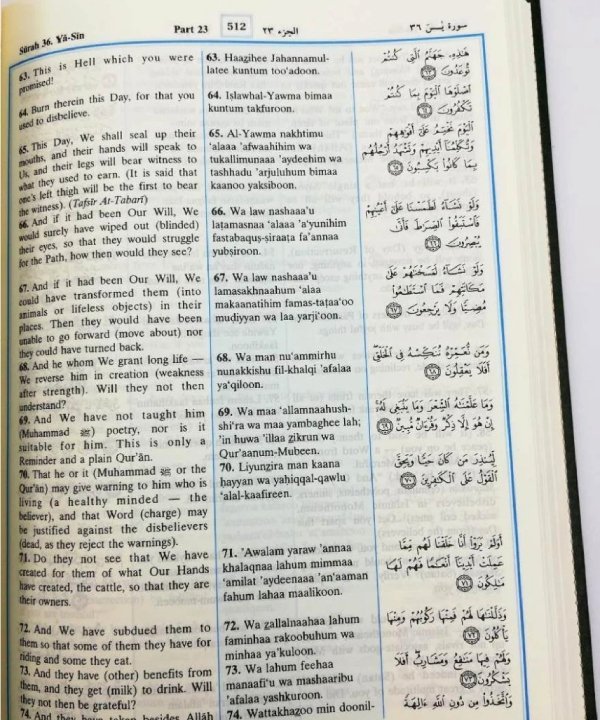 Sûrah 36. Yâ-Sîn
Part 23
512
الجزء ٢٣
سورة يٰسٓ ٣٦
63. This is Hell which you were
promised!
64. Burn therein this Day, for that you
used to disbelieve.
65. This Day, We shall seal up their
mouths, and their hands will speak to
Us, and their legs will bear witness to
what they used to earn. (It is said that
one's left thigh will be the first to bear
the witness). (Tafsîr At-Tabarî)
66. And if it had been Our Will, We
would surely have wiped out (blinded)
their eyes, so that they would struggle
for the Path, how then would they see?
67. And if it had been Our Will, We
could have transformed them (into
animals or lifeless objects) in their
places. Then they would have been
unable to go forward (move about) nor
they could have turned back.
68. And he whom We grant long life —
We reverse him in creation (weakness
after strength). Will they not then
understand?
69. And We have not taught him
(Muhammad ﷺ) poetry, nor is it
suitable for him. This is only a
Reminder and a plain Qur'ân.
70. That he or it (Muhammad ﷺ or the
Qur'ân) may give warning to him who is
living (a healthy minded — the
believer), and that Word (charge) may
be justified against the disbelievers
(dead, as they reject the warnings).
71. Do they not see that We have
created for them of what Our Hands
have created, the cattle, so that they are
their owners.
72. And We have subdued them to
them so that some of them they have for
riding and some they eat.
73. And they have (other) benefits from
them, and they get (milk) to drink. Will
they not then be grateful?
74. And they have taken besides Allâh
63. Haagihee Jahannamul-
latee kuntum too'adoon.
64. Islawhal-Yawma bimaa
kuntum takfuroon.
65. Al-Yawma nakhtimu
'alaaa 'afwaahihim wa
tukallimunaaa 'aydeehim wa
tashhadu 'arjuluhum bimaa
kaanoo yaksiboon.
66. Wa law nashaaa'u
laṭamasnaa 'alaaa 'a'yunihim
fastabaquṣ-ṣiraaṭa fa'annaa
yubṣiroon.
67. Wa law nashaaa'u
lamasakhnaahum 'alaa
makaanatihim famas-taṭaa'oo
muḍiyyan wa laa yarji'oon.
68. Wa man nu'ammirhu
nunakkishu fil-khalqi 'afalaa
ya'qiloon.
69. Wa maa 'allamnaahush-
shi'ra wa maa yambaghee lah;
'in huwa 'illaa zikrun wa
Qur'aanum-Mubeen.
70. Liyunẓira man kaana
hayyan wa yaḥiqqal-qawlu
'alal-kaafireen.
71. 'Awalam yaraw 'annaa
khalaqnaa lahum mimmaa
'amilat 'aydeenaaa 'an'aaman
fahum lahaa maalikoon.
72. Wa zallalnaahaa lahum
faminhaa rakoobuhum wa
minhaa ya'kuloon.
73. Wa lahum feehaa
manaafi'u wa mashaaribu
'afalaa yashkuroon.
74. Wattakhazoo min doonil-
هَٰذِهِۦ جَهَنَّمُ ٱلَّتِى كُنتُمْ
تُوعَدُونَ ٦٣
ٱصْلَوْهَا ٱلْيَوْمَ بِمَا كُنتُمْ
تَكْفُرُونَ ٦٤
ٱلْيَوْمَ نَخْتِمُ عَلَىٰٓ أَفْوَٰهِهِمْ
وَتُكَلِّمُنَآ أَيْدِيهِمْ وَتَشْهَدُ أَرْجُلُهُم
بِمَا كَانُوا۟ يَكْسِبُونَ ٦٥
وَلَوْ نَشَآءُ لَطَمَسْنَا عَلَىٰٓ أَعْيُنِهِمْ
فَٱسْتَبَقُوا۟ ٱلصِّرَٰطَ فَأَنَّىٰ
يُبْصِرُونَ ٦٦
وَلَوْ نَشَآءُ لَمَسَخْنَٰهُمْ عَلَىٰ
مَكَانَتِهِمْ فَمَا ٱسْتَطَٰعُوا۟
مُضِيًّا وَلَا يَرْجِعُونَ ٦٧
وَمَن نُّعَمِّرْهُ نُنَكِّسْهُ فِى ٱلْخَلْقِ
أَفَلَا يَعْقِلُونَ ٦٨
وَمَا عَلَّمْنَٰهُ ٱلشِّعْرَ وَمَا يَنۢبَغِى لَهُۥٓ
إِنْ هُوَ إِلَّا ذِكْرٌ وَقُرْءَانٌ مُّبِينٌ ٦٩
لِّيُنذِرَ مَن كَانَ حَيًّا وَيَحِقَّ
ٱلْقَوْلُ عَلَى ٱلْكَٰفِرِينَ ٧٠
أَوَلَمْ يَرَوْا۟ أَنَّا خَلَقْنَا لَهُم مِّمَّا
عَمِلَتْ أَيْدِينَآ أَنْعَٰمًا فَهُمْ لَهَا
مَٰلِكُونَ ٧١
وَذَلَّلْنَٰهَا لَهُمْ فَمِنْهَا رَكُوبُهُمْ وَمِنْهَا
يَأْكُلُونَ ٧٢
وَلَهُمْ فِيهَا مَنَٰفِعُ وَمَشَارِبُ أَفَلَا
يَشْكُرُونَ ٧٣
وَٱتَّخَذُوا۟ مِن دُونِ ٱللَّهِ ءَالِهَةً